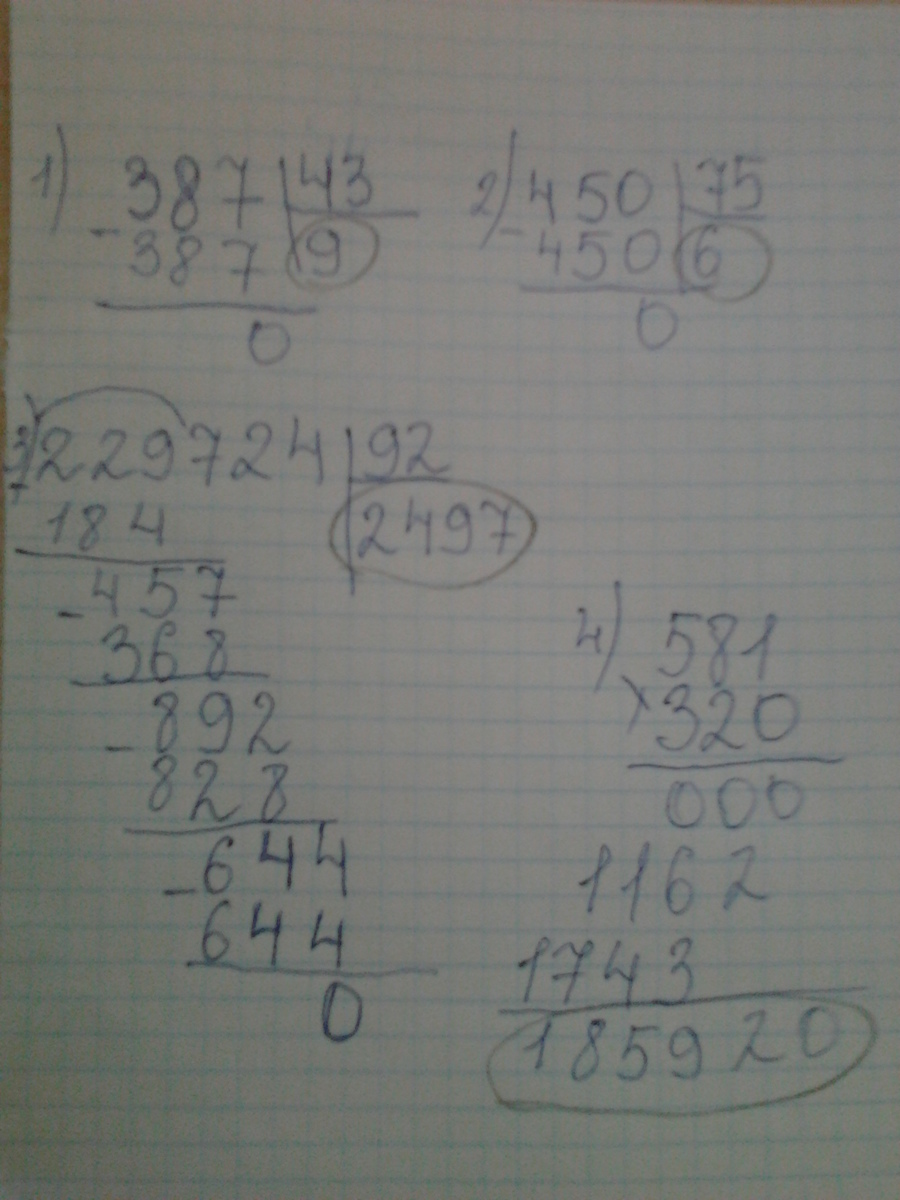 1) 387 | 43
- 387 | 9
0
2) 450 | 75
- 450 | 6
0
3) 229724 | 92
- 184 | 2497
- 457
368
- 892
828
- 644
644
0
4) 581
× 320
000
1162
1743
185920